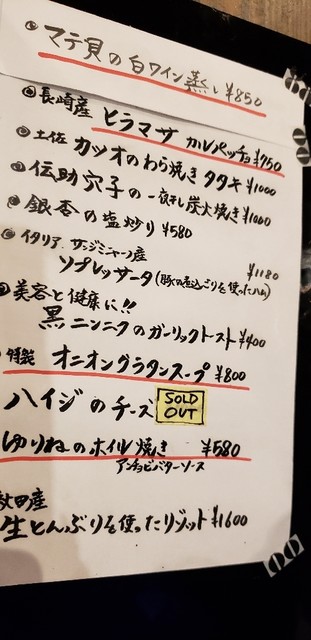 ◎ マテ貝の白ワイン蒸し ¥850
◎ 長崎産 ヒラマサ カルパッチョ ¥750
◎ 土佐 カツオのわら焼きタタキ ¥1000
◎ 伝助穴子の一夜干し炭火焼き ¥1000
◎ 銀杏の塩炒り ¥580
◎ イタリア.サンジミニャーノ産 ¥1180
ソプレッサータ(豚の煮こごりを使ったハム)
◎ 美容と健康に!!
黒ニンニクのガーリックトースト ¥400
特製 オニオングラタンスープ ¥800
ハイジのチーズ SOLD OUT
ゆりねのホイル焼き ¥580
アンチョビバターソース
秋田産
生とんぶりを使ったリゾット ¥1600